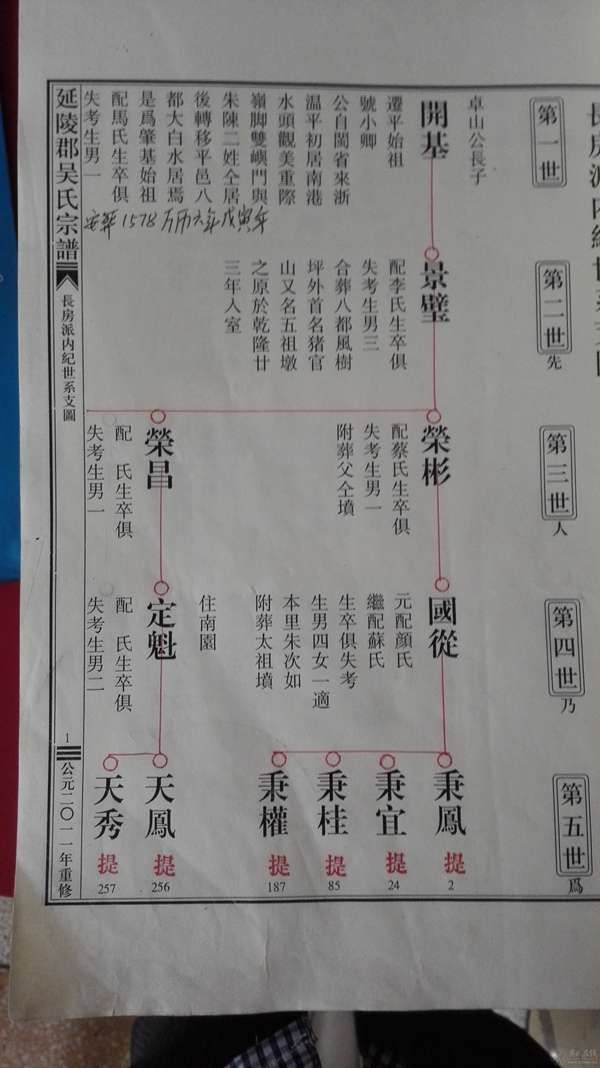 長房派內紀世系支圖
第一世
第二世先
第三世人
第四世乃
第五世爲
卓山公長子
開基
遷平始祖
號小卿
公自閩省來浙
溫平初居南港
水頭觀美重際
嶺脚雙嶼門與
朱陳二姓仝居
後轉移平邑八
都大白水居焉
是爲肇基始祖
配馬氏生卒俱
失考生男一
安葬1578万历六年戊寅年
景璧
配李氏生卒俱
失考生男三
合葬八都風樹
坪外首名猪官
山又名五祖墩
之原於乾隆廿
三年入室
榮彬
配蔡氏生卒俱
失考生男一
附葬父仝墳
榮昌
配 氏生卒俱
失考生男一
國從
元配顏氏
繼配蘇氏
生卒俱失考
生男四女一適
本里朱次如
附葬太祖墳
住南園
定魁
配 氏生卒俱
失考生男二
秉鳳 提 2
秉宜 提 24
秉桂 提 85
秉權 提 187
天鳳 提 256
天秀 提 257
延陵郡吴氏宗譜
長房派內紀世系支圖
1
公元二〇一一年重修